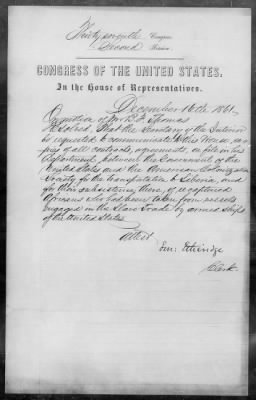 Thirty seventh Congress
Second Session
CONGRESS OF THE UNITED STATES.
In the House of Representatives.
December 16th 1861.
On motion of Mr Thomas
Resolved, That the Secretary of the Interior
be requested to communicate to this House, co-
pies of all contracts, agreements, on file in his
Department, between the Government of the
United States and the American Colonization
Society for the transportation to Liberia, and
for their subsistence there, of recaptured
Africans who had been taken from vessels
engaged in the Slave Trade by armed ships
of the United States.
Attest
Em: Etheridge
Clerk